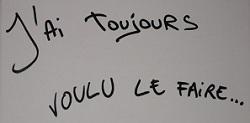 J'Ai TOUJOURS
VOULU LE FAIRE...